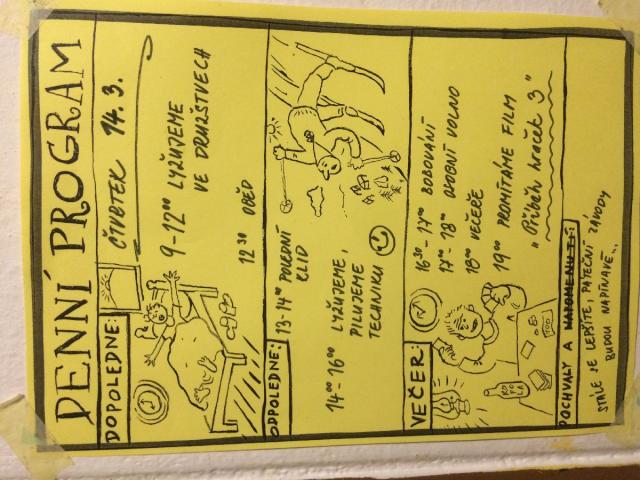 DENNÍ PROGRAM
DOPOLEDNE:
ČTVRTEK 14.3.
9-12⁰⁰ LYŽUJEME
VE DRUŽSTVECH
12³⁰ OBĚD
ODPOLEDNE:
13-14⁰⁰ POLEDNÍ
KLID
14⁰⁰-16⁰⁰ LYŽUJEME,
PILUJEME
TECHNIKU
VEČER:
16³⁰-17⁰⁰ BOBOVÁNÍ
17⁰⁰-18⁰⁰ OSOBNÍ VOLNO
18⁰⁰ VEČEŘE
19⁰⁰ PROMÍTÁME FILM
"Příběh hraček 3"
KOFOLA
POCHVALY A NAPOMENUTÍ:
STÁLE SE LEPŠÍTE, PÁTEČNÍ ZÁVODY
BUDOU NAPÍNAVÉ...